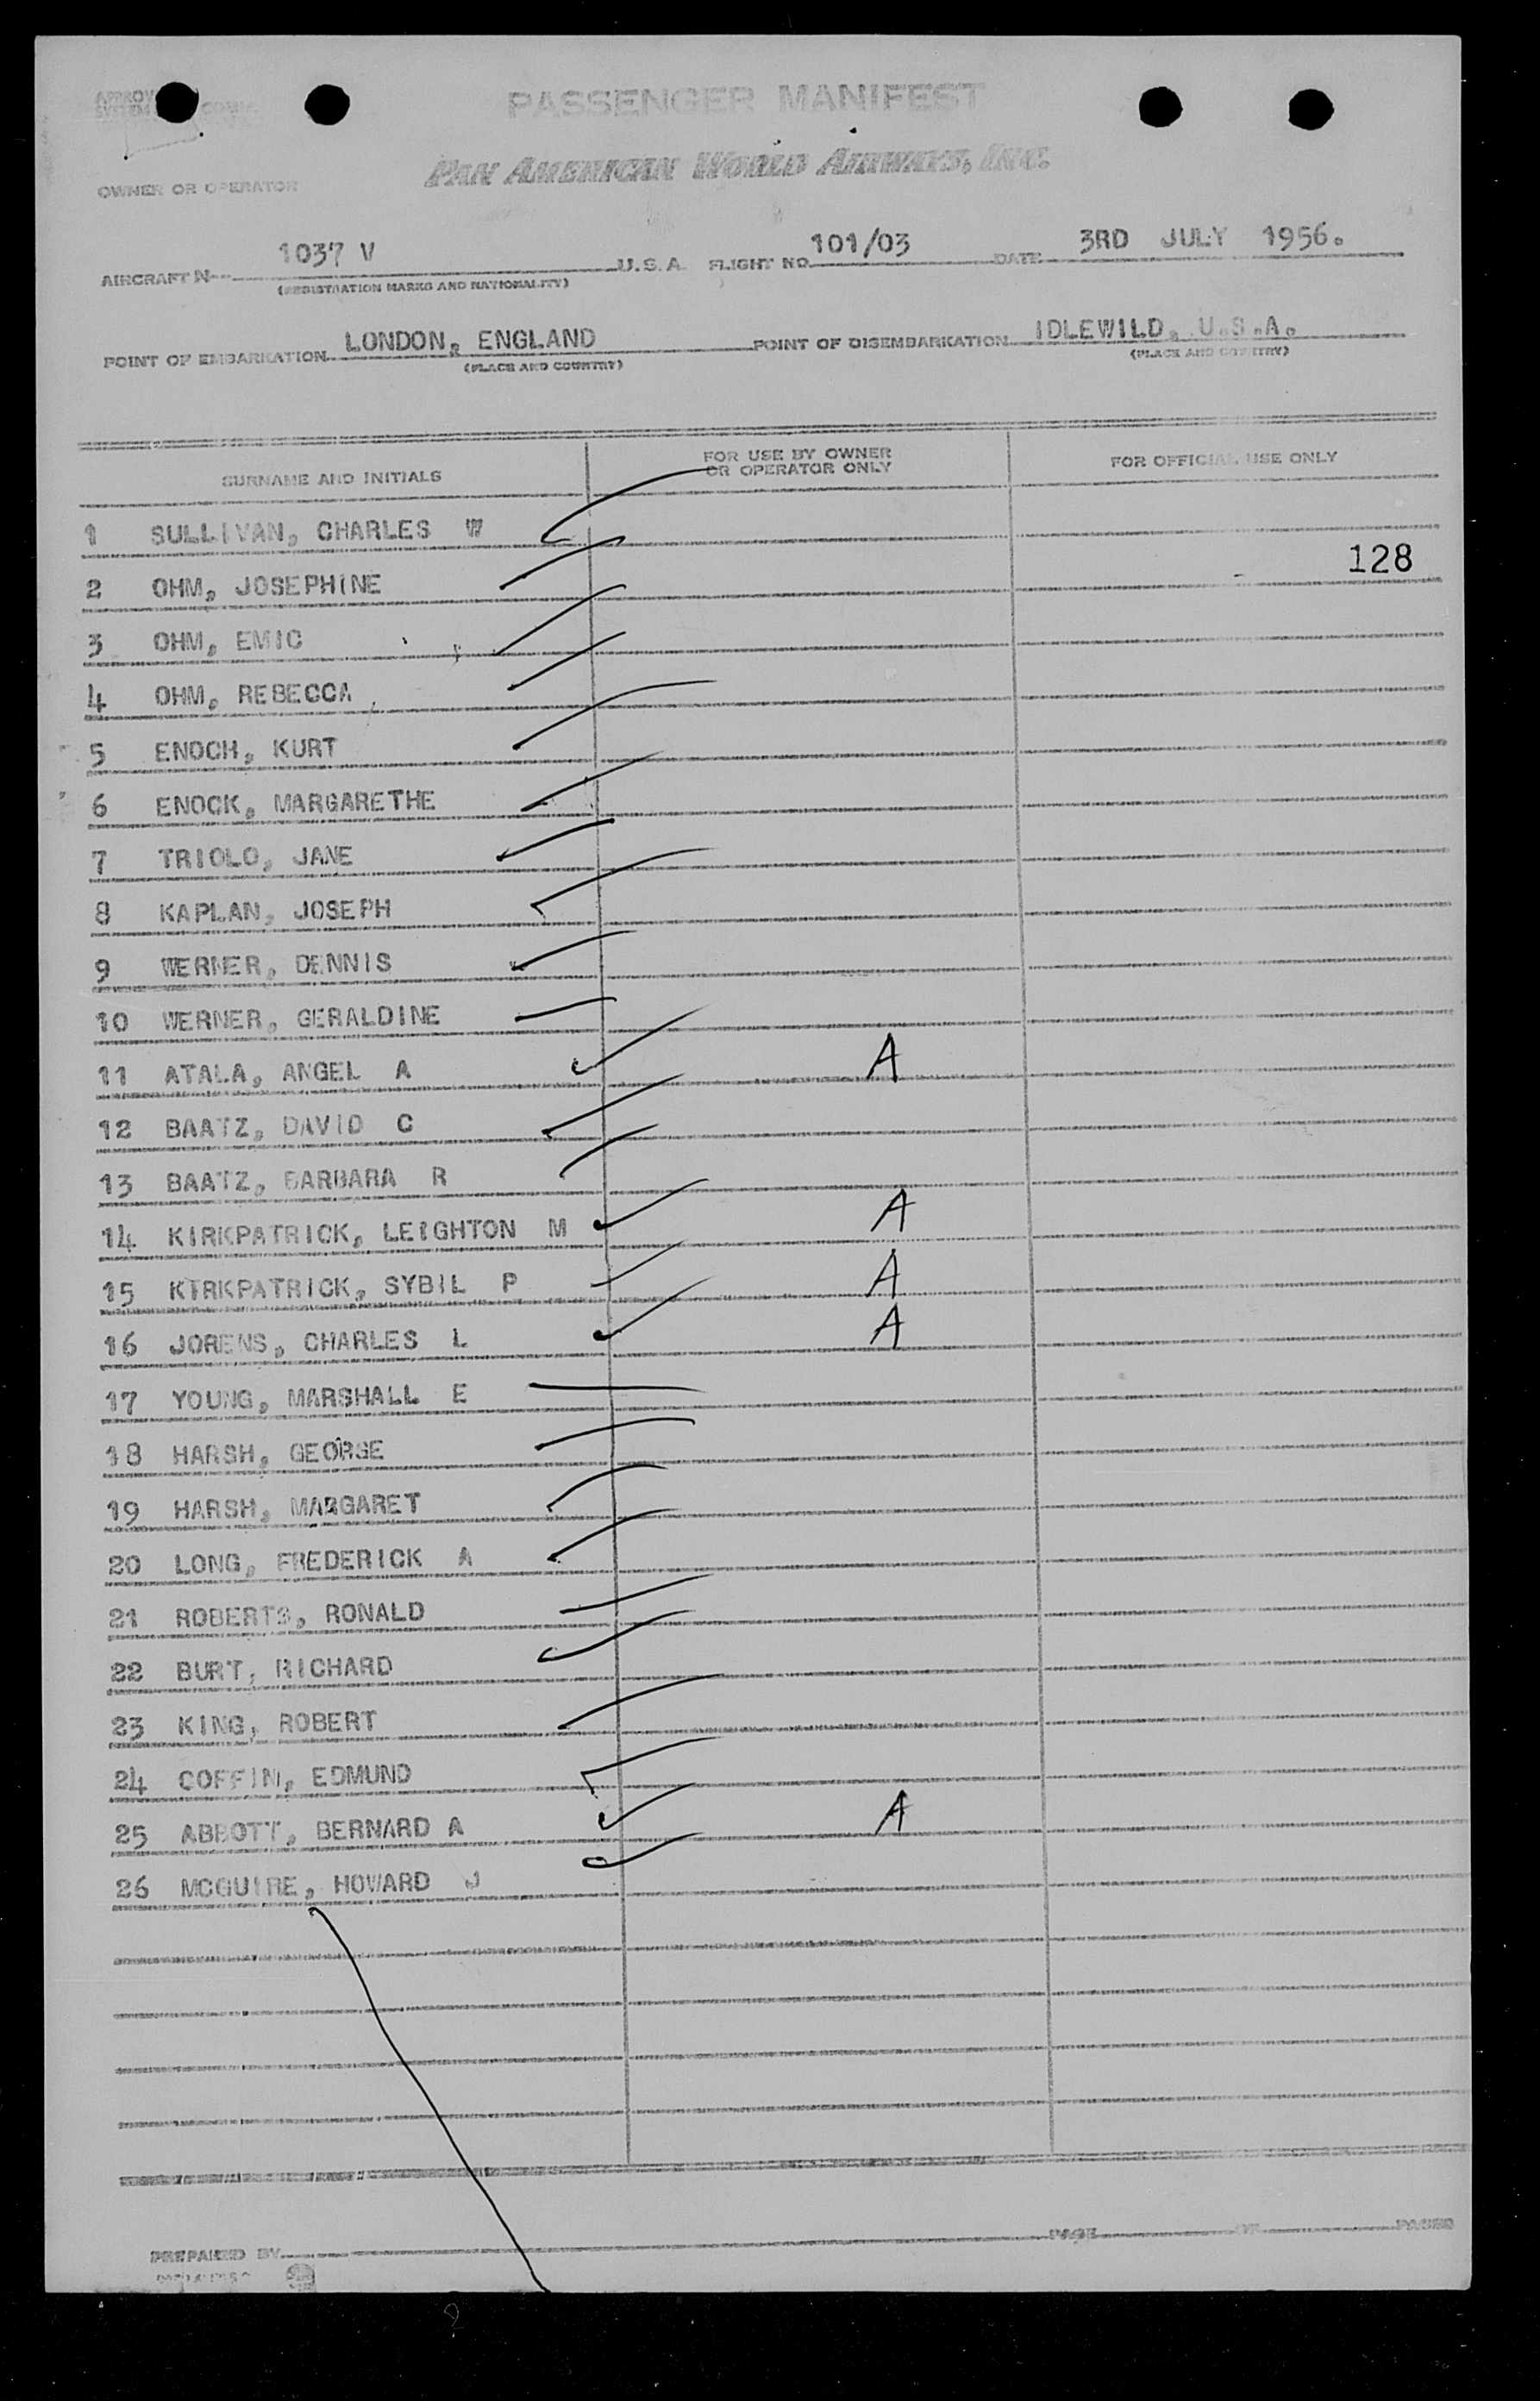 PASSENGER MANIFEST
PAN AMERICAN WORLD AIRWAYS, INC.
OWNER OR OPERATOR
AIRCRAFT N 1037 V U.S.A. FLIGHT NO. 101/03 DATE 3RD JULY 1956.
(REGISTRATION MARKS AND NATIONALITY)
POINT OF EMBARKATION LONDON, ENGLAND POINT OF DISEMBARKATION IDLEWILD, U.S.A.
(PLACE AND COUNTRY) (PLACE AND COUNTRY)
SURNAME AND INITIALS FOR USE BY OWNER OR OPERATOR ONLY FOR OFFICIAL USE ONLY
1 SULLIVAN, CHARLES W
128
2 OHM, JOSEPHINE
3 OHM, EMIC
4 OHM, REBECCA
5 ENOCH, KURT
6 ENOCK, MARGARETHE
7 TRIOLO, JANE
8 KAPLAN, JOSEPH
9 WERNER, DENNIS
10 WERNER, GERALDINE
11 ATALA, ANGEL A A
12 BAATZ, DAVID C
13 BAATZ, BARBARA R
14 KIRKPATRICK, LEIGHTON M A
15 KIRKPATRICK, SYBIL P A
16 JORENS, CHARLES L A
17 YOUNG, MARSHALL E
18 HARSH, GEORGE
19 HARSH, MARGARET
20 LONG, FREDERICK A
21 ROBERTS, RONALD
22 BURT, RICHARD
23 KING, ROBERT
24 COFFIN, EDMUND
25 ABBOTT, BERNARD A A
26 MCGUIRE, HOWARD J
PREPARED BY PAGE OF PAGES